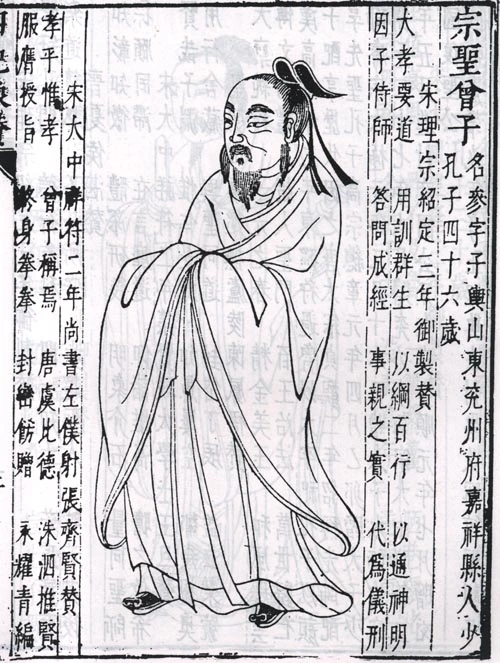 宗聖曾子
名參字子輿山東兗州府嘉祥縣人少
孔子四十六歲
宋理宗紹定三年御製賛
大孝要道 用訓群生 以綱百行 以通神明
因子侍師 答問成經 事親之實 代爲儀刑
宋大中祥符二年尚書左僕射張齊賢賛
孝乎惟孝 曾子稱焉 唐虞比德 洙泗推賢
服膺授旨 終身拳拳 封巒飭贈 永耀青編